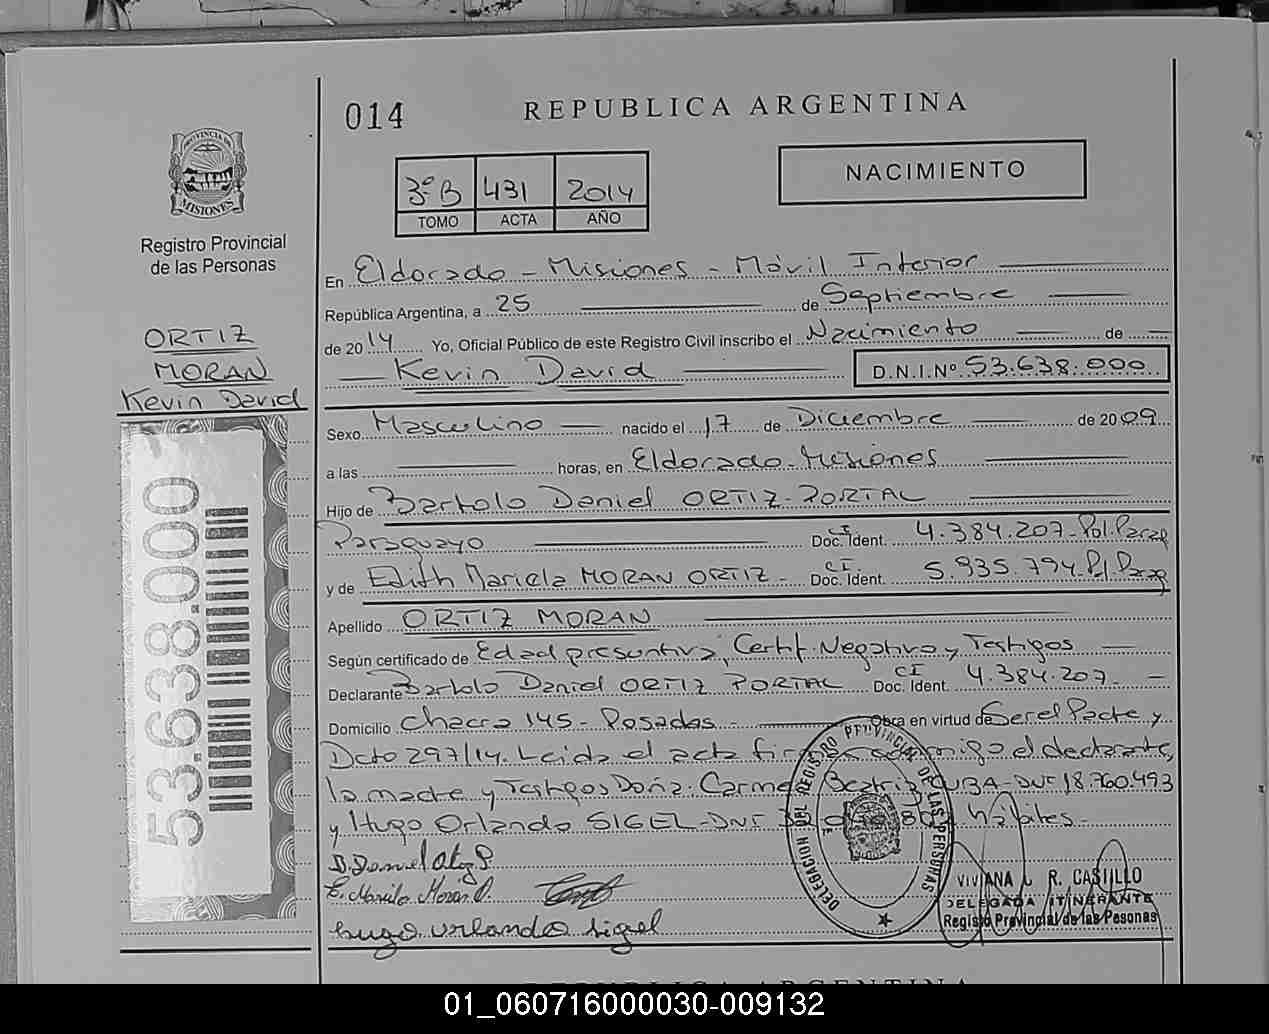 014
REPUBLICA ARGENTINA
PROVINCIA DE
MISIONES
Registro Provincial
de las Personas
3º B 431 2014
TOMO ACTA AÑO
NACIMIENTO
ORTIZ
MORAN
Kevin David
53.638.000
En Eldorado - Misiones - Móvil Interior
República Argentina, a 25 de Septiembre
de 2014 Yo, Oficial Público de este Registro Civil inscribo el Nacimiento de
Kevin David D.N.I.Nº 53.638.000
Sexo Masculino nacido el 17 de Diciembre de 2009
a las horas, en Eldorado - Misiones
Hijo de Bartolo Daniel ORTIZ - PORTAL
Paraguayo Doc. Ident. CI 4.384.207 - Pol. Parag
y de Edith Mariela MORAN ORTIZ - Doc. Ident. CI 5.935.794 - Pol. Parag
Apellido ORTIZ MORAN
Según certificado de Edad presuntiva, Certif. Negativo y Testigos
Declarante Bartolo Daniel ORTIZ PORTAL Doc. Ident. CI 4.384.207 -
Domicilio Chacra 145 - Posadas - Obra en virtud de Ser el Padre y
Dcto 297/14. Leida el acta conmigo el declarante,
la madre y Testigos Doña. Beatriz CUBA - DNI 18.760.493
y Hugo Orlando SIGEL - DNI hábiles -
E. Mariela Moran O.
hugo orlando sigel
DELEGACION DEL REGISTRO PROVINCIAL DE LAS PERSONAS
VIVIANA R. CASTILLO
DELEGADA ITINERANTE
Registro Provincial de las Pesonas
REPUBLICA ARGENTINA
01_060716000030-009132